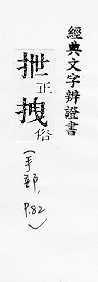 經典文字辨證書
抴正
拽俗
(手部,
P.82)